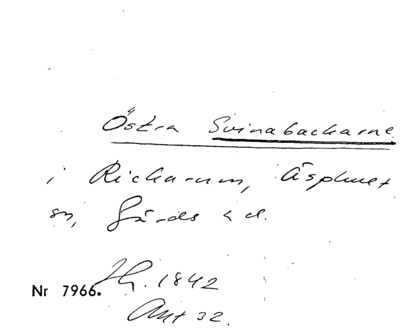 Östra Svinabackarne
i Rickarum, Äsphult
sn, Gärds hd.
1842
Nr 7966.
Akt 32.